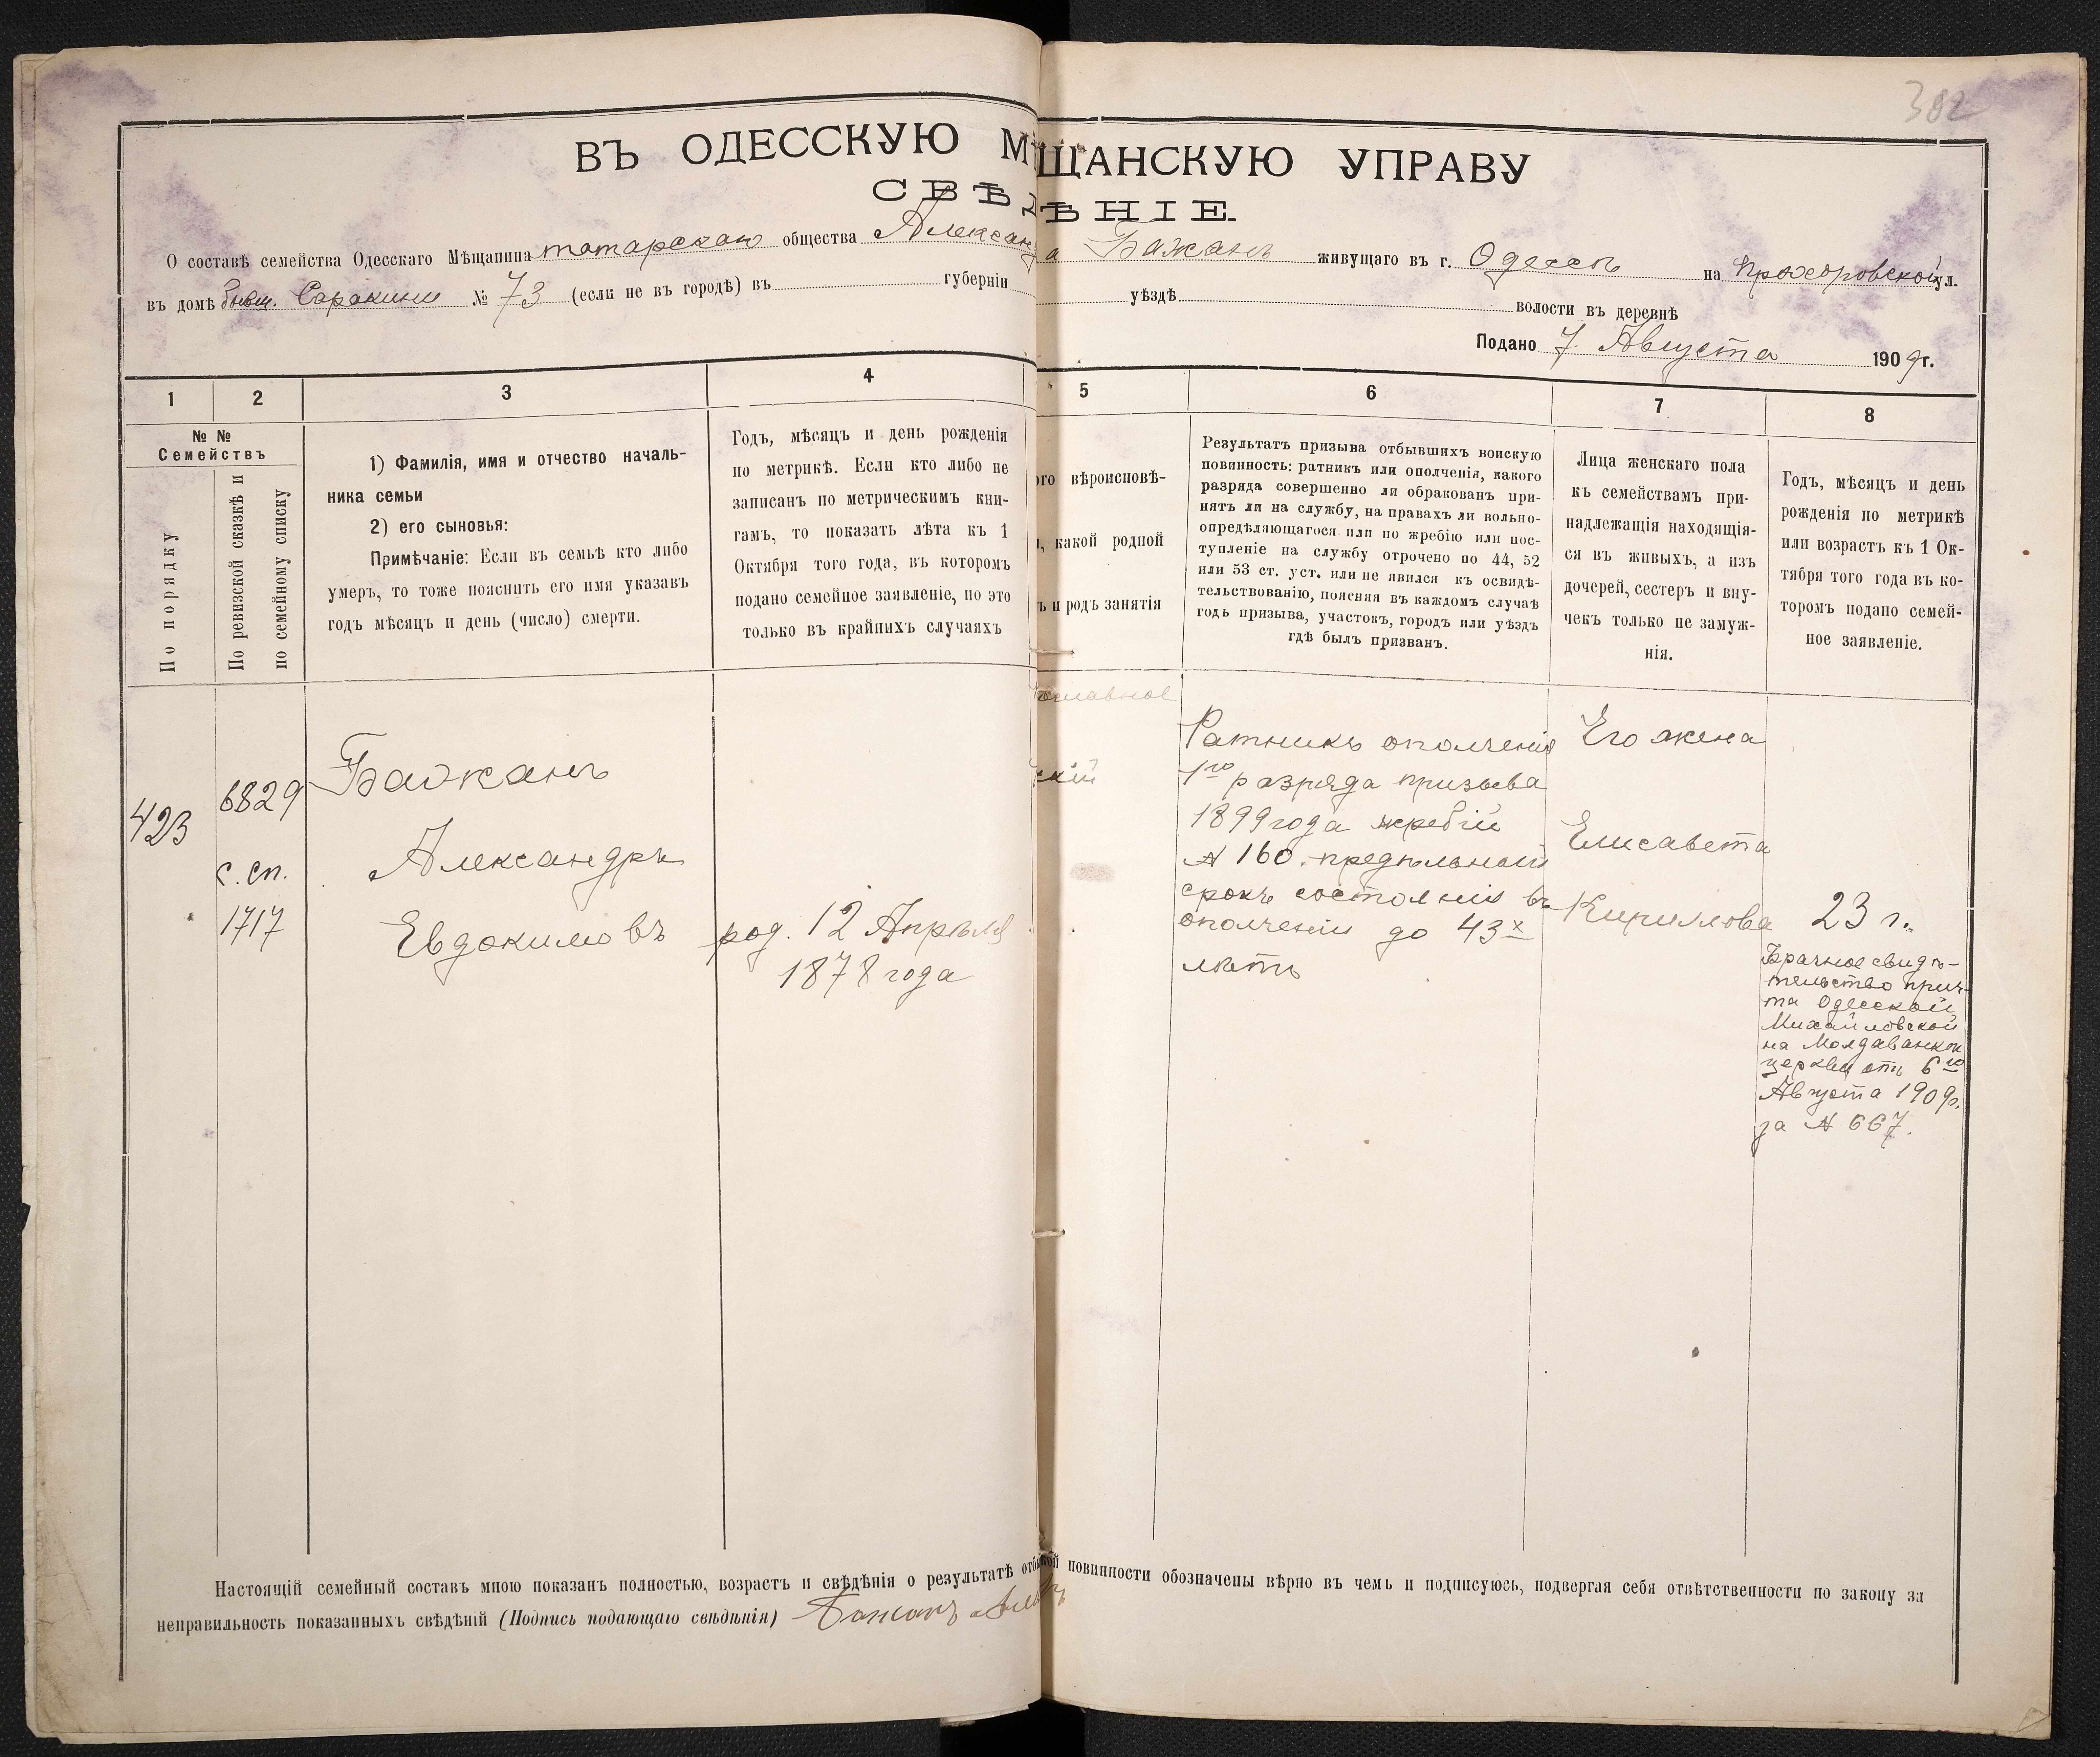 382
ВЪ ОДЕССКУЮ МѢЩАНСКУЮ УПРАВУ
СВѢДѢНІЕ
О составѣ семейства Одесскаго Мѣщанина татарскаго общества Александра Бажанъ живущаго въ г. Одессѣ на Прохоровской ул.
въ домѣ бывш. Саракини № 73 (если не въ городѣ) въ губерніи уѣздѣ волости въ деревнѣ
Подано 7 Августа 1909 г.
1 2 3 4 5 6 7 8
№ №
Семействъ
По порядку
По ревизской сказкѣ и
по семейному списку
1) Фамилія, имя и отчество началь-
ника семьи
2) его сыновья:
Примѣчаніе: Если въ семьѣ кто либо
умеръ, то тоже пояснить его имя указавъ
годъ мѣсяцъ и день (число) смерти.
Годъ, мѣсяцъ и день рожденія
по метрикѣ. Если кто либо не
записанъ по метрическимъ кни-
гамъ, то показать лѣта къ 1
Октября того года, въ которомъ
подано семейное заявленіе, но это
только въ крайнихъ случаяхъ
ого вѣроисповѣ-
, какой родной
ъ и родъ занятія
Результатъ призыва отбывшихъ воинскую
повинность: ратникъ или ополченія, какого
разряда совершенно ли обракованъ при-
нятъ ли на службу, на правахъ ли вольно-
опредѣляющагося или по жребію или пос-
тупленіе на службу отрочено по 44, 52
или 53 ст. уст. или не явился къ освидѣ-
тельствованію, поясняя въ каждомъ случаѣ
годъ призыва, участокъ, городъ или уѣздъ
гдѣ былъ призванъ.
Лица женскаго пола
къ семействамъ при-
надлежащія находящія-
ся въ живыхъ, а изъ
дочерей, сестеръ и вну-
чекъ только не замуж-
нія.
Годъ, мѣсяцъ и день
рожденія по метрикѣ
или возрастъ къ 1 Ок-
тября того года въ ко-
торомъ подано семей-
ное заявленіе.
423
6829
с. сп.
1717
Бажанъ
Александръ
Евдокимовъ
род. 12 Апрѣля
1878 года
ославное
скій
Ратникъ ополченія
1го разряда призыва
1899 года жребій
№ 160. предѣльный
срокъ состоянія въ
ополченіи до 43х
лѣтъ
Его жена
Елисавета
Кирилова
23 г.
Брачное свидѣ-
тельство прич-
та Одесской
Михайловской
на Молдаванкѣ
церкви отъ 6го
Августа 1909 г.
за № 667.
Настоящій семейный составъ мною показанъ полностью, возрастъ и свѣдѣнія о результатѣ отбы кой повинности обозначены вѣрно въ чемъ и подписуюсь, подвергая себя отвѣтственности по закону за
неправильность показанныхъ свѣдѣній (Подпись подающаго свѣдѣнія) Бажанъ